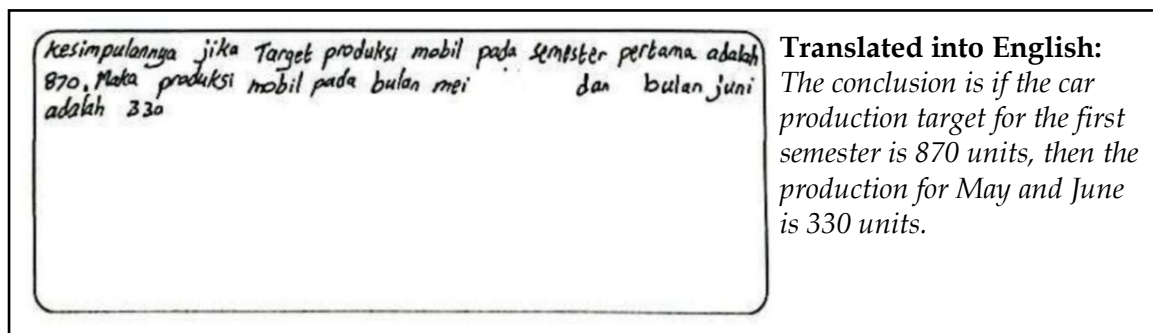 kesimpulannya jika Target produksi mobil pada semester pertama adalah
870. Maka produksi mobil pada bulan mei dan bulan juni
adalah 330
Translated into English:
The conclusion is if the car
production target for the first
semester is 870 units, then the
production for May and June
is 330 units.